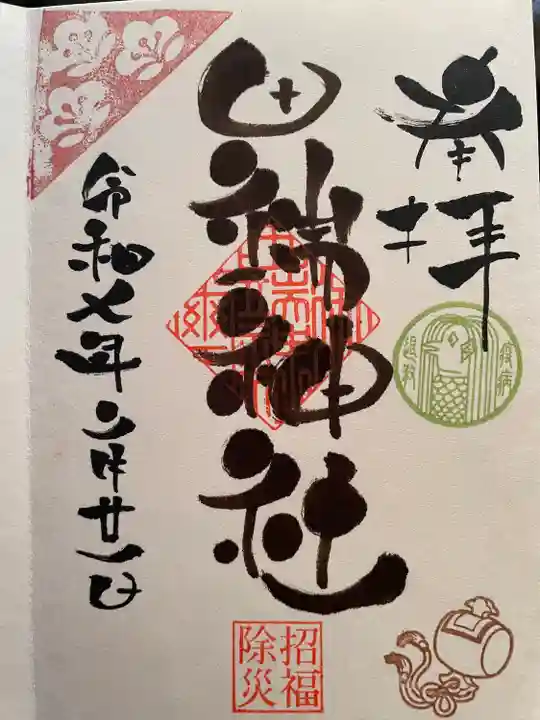 奉拝
田端神社
令和七年二月廿一日
疫病
退散
招福
除災